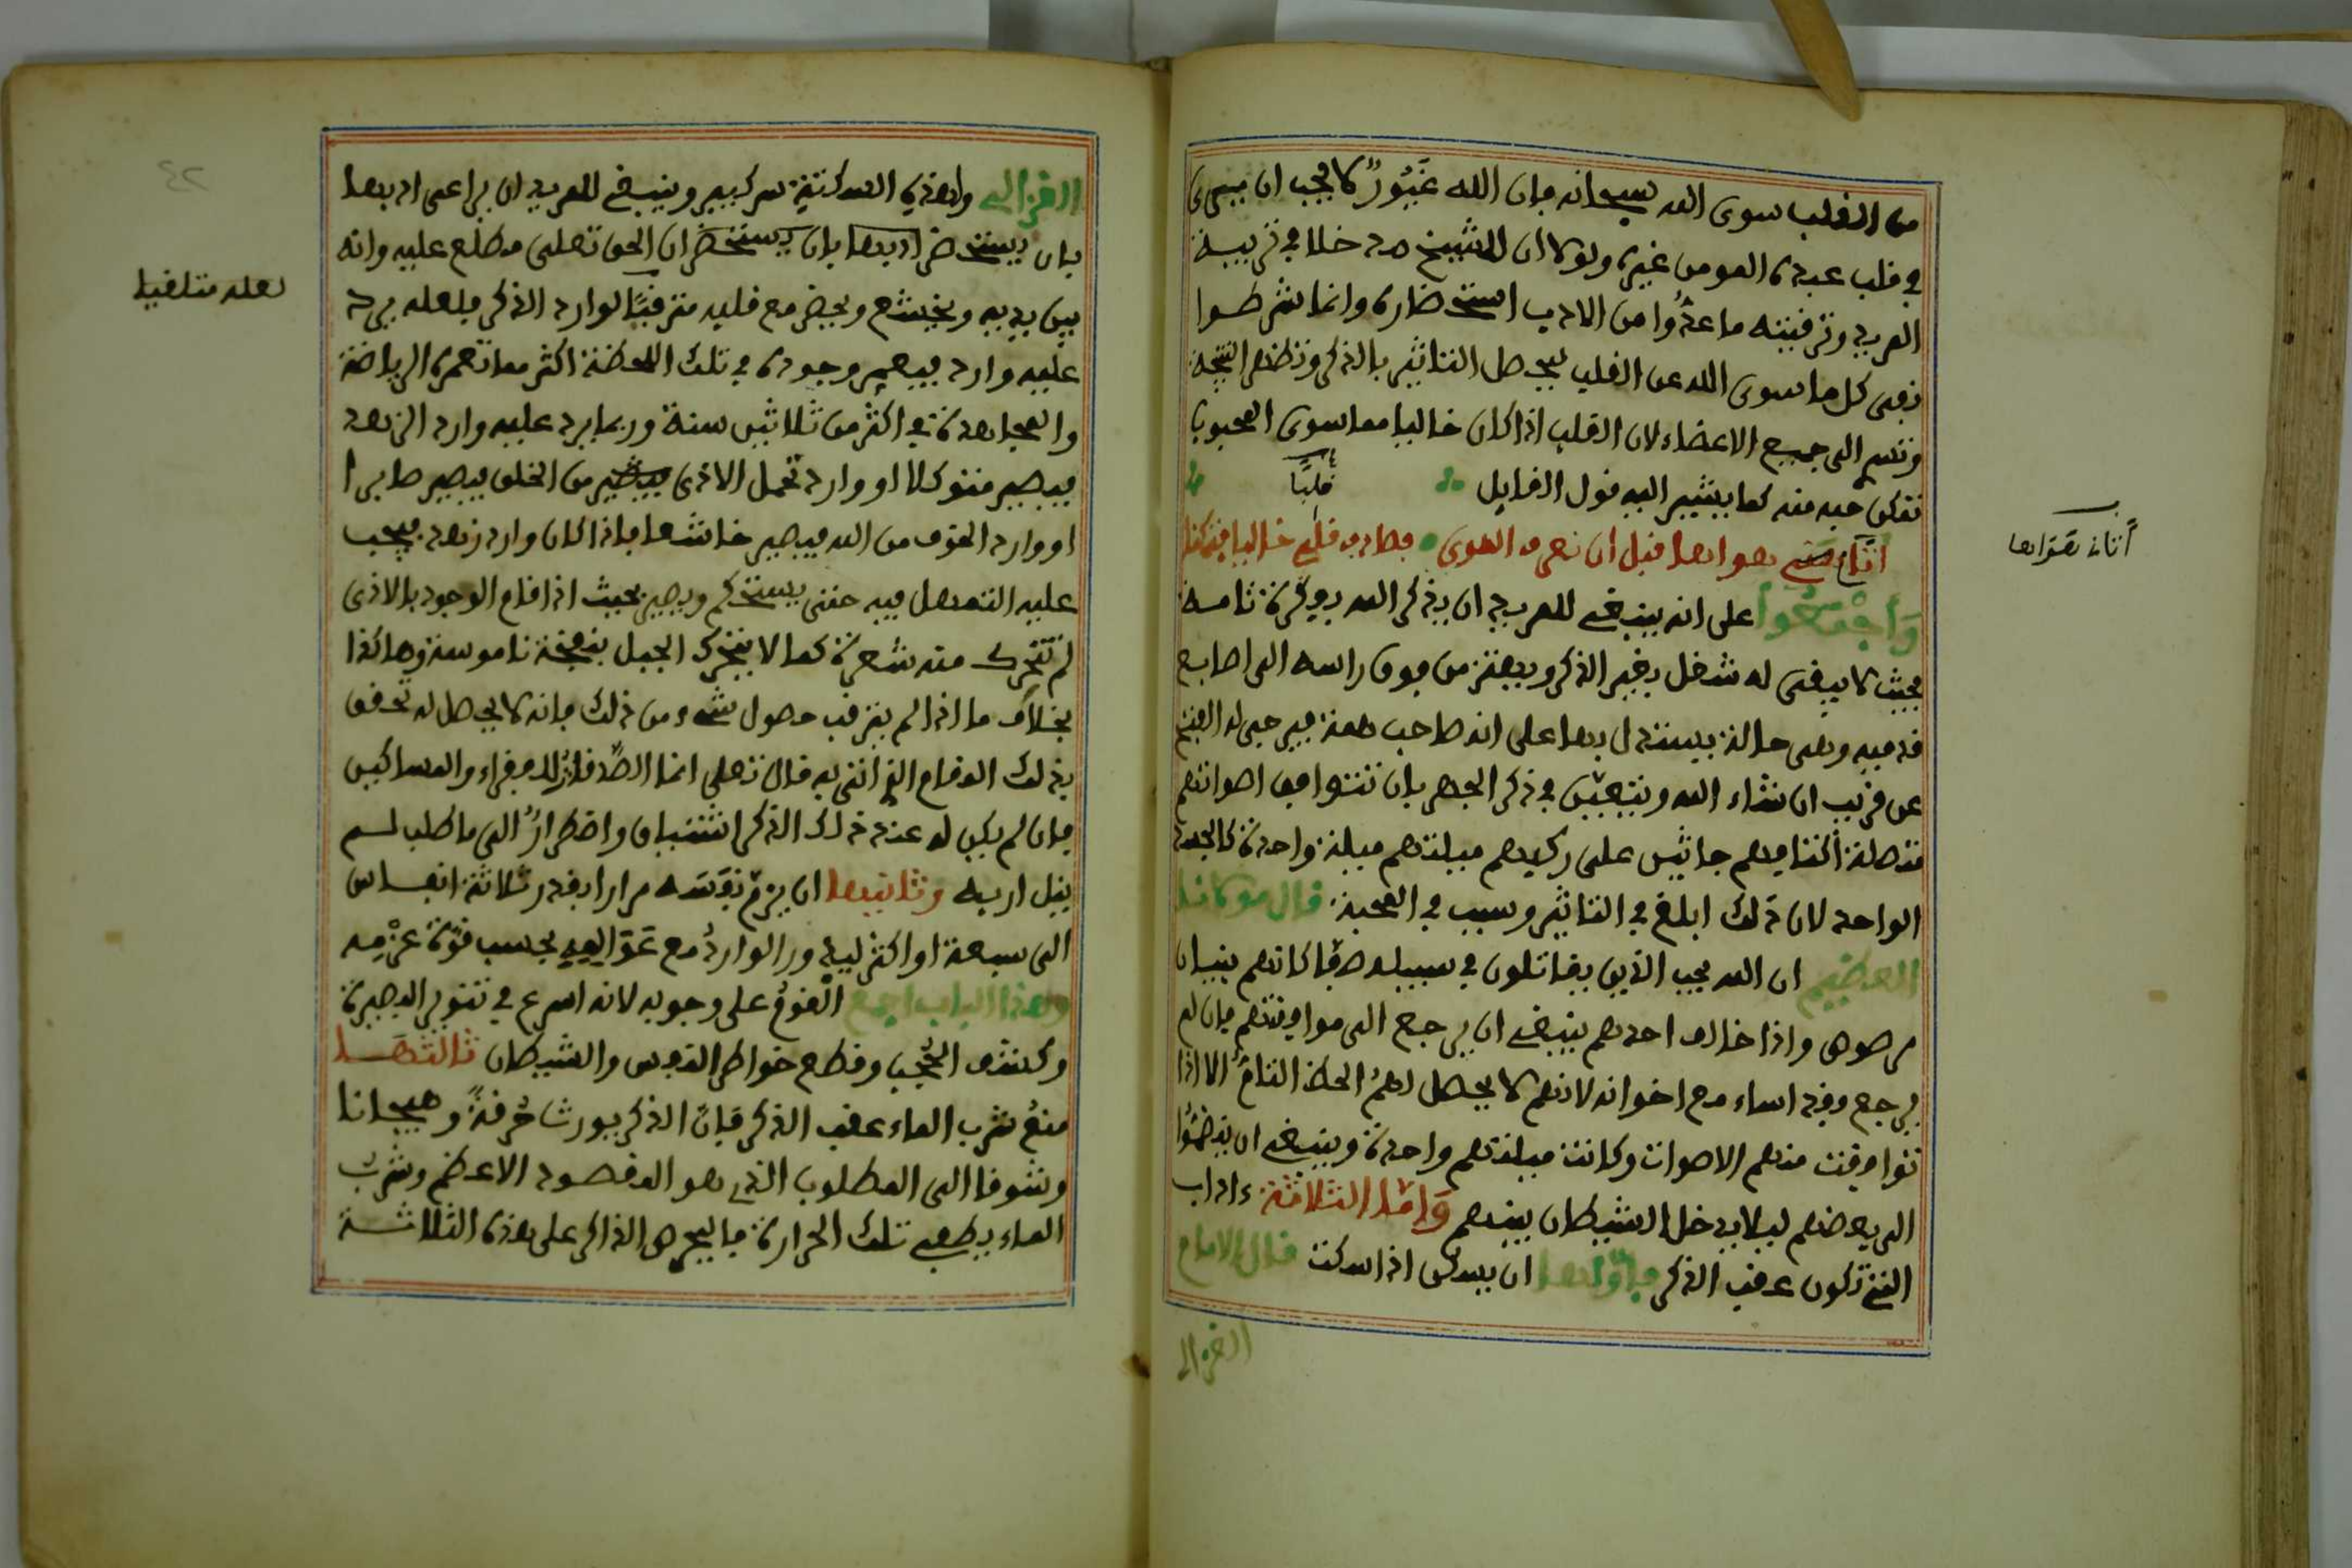 من القلب سوى الله سبحانه فان الله غَيُورٌ لا يحب ان يرى
في قلب عبده المومن غيره ولولا ان للشيخ مدخلا في تربية
المريد وترقيته ما عدُّوا من الادب استحضاره وانما شرطوا
نفى كل ما سوى الله عن القلب ليحصل التاثير بالذكر وتظهر النتيجة
وتسرى الى جميع الاعضاء لان القلب اذا كان خاليا مما سوى المحبوب
تمكن حبه منه كما يشير اليه قول القايل
قلبًا
اتانى هواها قبل ان نعرف الهوى فصادف قلبى خاليا فتمكنا
أتان هواها
وَأجْمَعُوا على انه ينبغى للمريد ان يذكر الله بقوة تامة
بحيث لا يبقى له شغل بغير الذكر ويهتز من فوق راسه الى اصابع
قدميه وهى حالة يستدل بها على انه صاحب همة فيرجى له الفتح
عن قريب ان شاء الله ويتعين في ذكر الجهر بان تتوافق اصواتهم
متصلة اكتافهم جاثين على ركبهم قبلتهم قبلة واحدة كالجسد
الواحد لان ذلك ابلغ في التاثير وسبب في المحبة قال مولانا
العظيم ان الله يحب الذين يقاتلون في سبيله صفا كانهم بنيان
مرصوص واذا خالف احدهم ينبغى ان يرجع الى موافقتهم فان لم
يرجع وقد اساء مع اخوانه لانهم لا يحصل لهمُ الحظ التامُّ الا اذا
توافقت منهم الاصوات وكانت قبلتهم واحدة وينبغى ان ينضمُّوا
الى بعضهم ليلا يدخل الشيطان بينهم وَامّا الثلاثة ءاداب
التى تكون عقب الذكر فأوّلها ان يسكن اذا سكت قال الامام
الغزالى
الغزالى ولهذه السكتة سر كبير وينبغى للمريد ان يراعى ادبها
بان يستحضر ادبها بان يستحضر ان الحق تعلى مطلع عليه وانه
بين يديه ويخشع ويحضر مع قلبه مترقبًا لوارد الذكر فلعله يرد
لعله متلقيا
عليه وارد فيعمر وجوده في تلك اللحظة اكثر مما تعمره الرياضة
والمجاهدة في اكثر من ثلاثين سنة وربما يرد عليه وارد الزهد
فيصير متوكلا او وارد تحمل الاذى من الخلق فيصير صابرا
او وارد الخوف من الله فيصير خاشعا فاذا كان وارد زهد فيجب
عليه التمهل فيه حتى يستحكم ويصير بحيث اذا قام الوجود بالاذى
لم تتحرك منه شعرة كما لا يتحرك الجبل بنفخة ناموسة وهاكذا
بخلاف ما اذا لم يترقب حصول شىء من ذلك فانه لا يحصل له تحقق
بذلك المقام الذى اتى به قال تعلى انما الصدقات للفقراء والمساكين
فان لم يكن له عند ذلك الذكر اشتياق واضطرارٌ الى ما طلب لم
ينل اربه وثانيها ان يزمّ نفَسَه مرارا بقدر ثلاثة انفاس
الى سبعة او اكثر ليدور الواردُ مع بحسب قوّة عزمه
وهذا الباب اجمع القومُ على وجوبه لانه اسرع في تنوير البصيرة
وكشف الحُجب وقطع خواطر النفس والشيطان ثالثها
منعُ شرب الماء عقب الذكر فإن الذكر يورث حُرقةً وهيجانا
وتشوقا الى المطلوب الذى هو المقصود الاعظم وشربُ
الماء يطفى تلك الحرارة فاليحرص الذاكر على هذه الثلاثة
٤٢